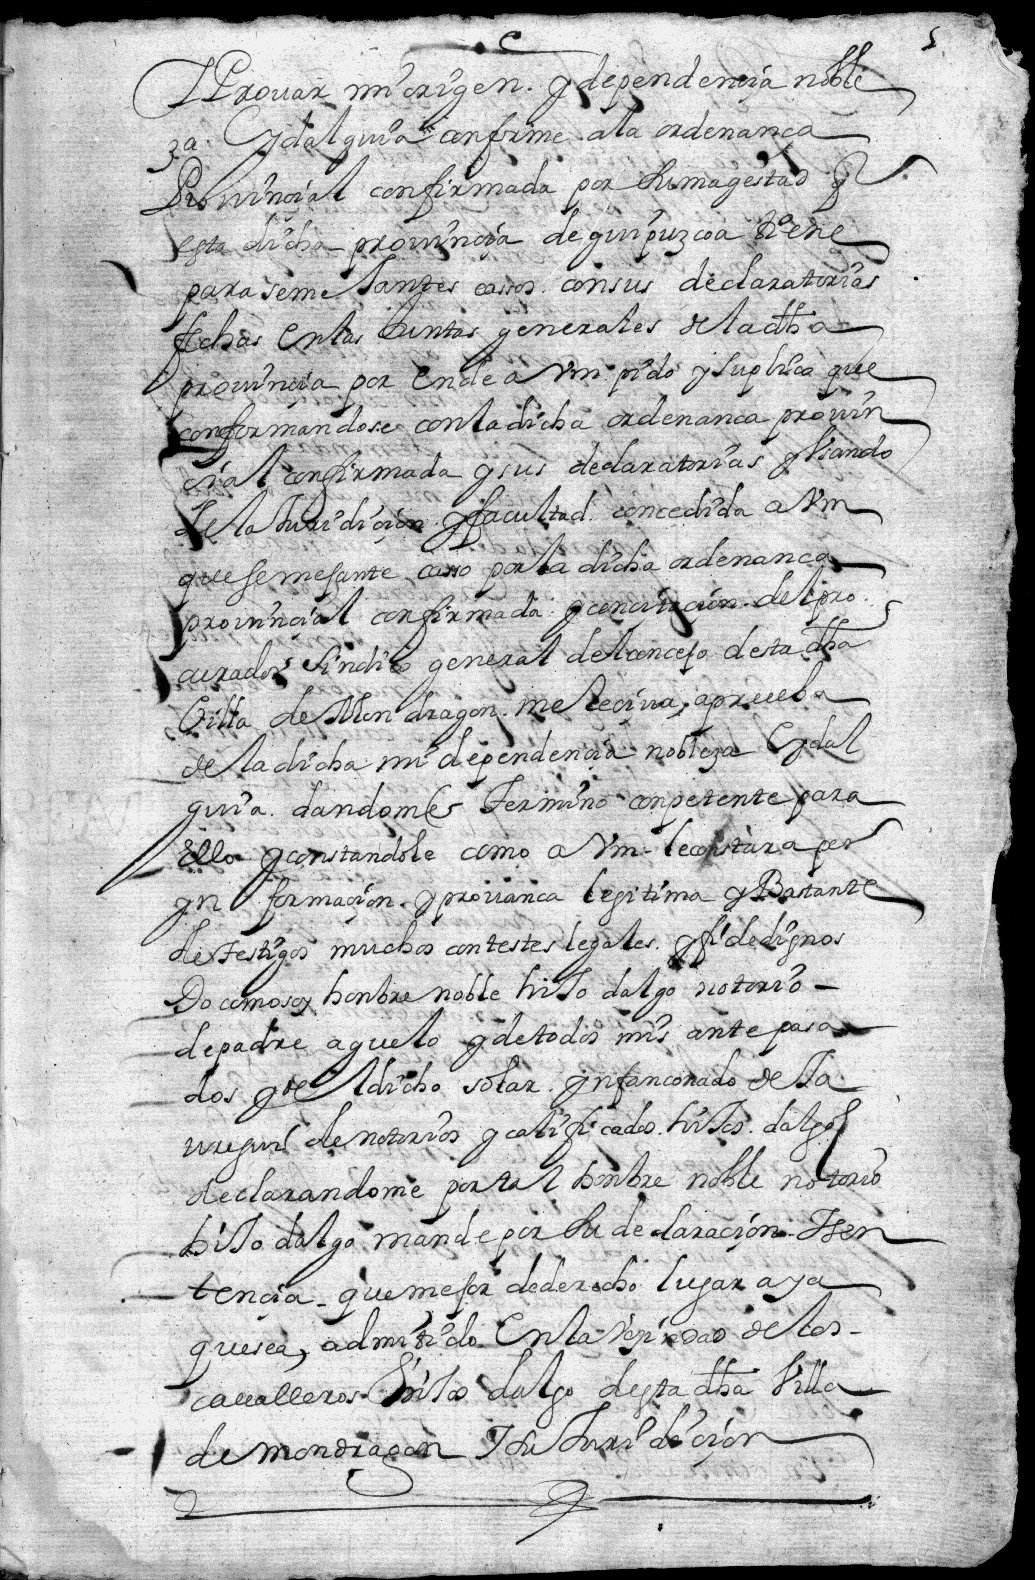 5
YProuar mi origen. y dependencia noble
za. Ydalguia conforme ala ordenança
Prouinçial confirmada por su magestad q
esta dicha prouinçia de guipuzcoa tiene
para semeJantes cassos. consus declaratorias
fchas En las Juntas generales de la dha
prouinçia por Ende a Vm pido y suplico que
conformandose con la dicha ordenança prouin
cial confirmada y sus declaratorias y Vsando
de la Juridiçion y facultad concedida a Vm
que semejante casso por la dicha ordenança
prouinçial confirmada y concitacion del pro
curador sindico general del concejo desta dha
Villa de Mondragon. me Reciua, aprueba
de la dicha mi dependencia nobleza Eydal
guia. dandome termino conpetente para
Ello y constandole como a Vm le constara por
ynformaçion. y prouança legitima y Bastante
de testigos muchos contestes legales. y fidedignos
Yo como soy honbre noble hiJo dalgo notorio
de padre aguelo y de todos mis antepasa
dos y del dicho solar ynfançonado de Ja
uregui de notorios y calificados hiJos dalgo
declarandome por tal honbre noble notorio
hiJo dalgo mande por su declaraçion Y sen
tençia que mejor de derecho lugar aya
que sea, admitido En la Vezindad de los
caualleros hiJos dalgo desta dha Villa
de mondragon Y su Juridiçion